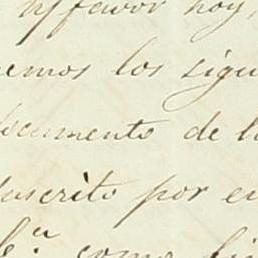 favor hoy,
emos los sigu
documento de l
suscrito por e
como